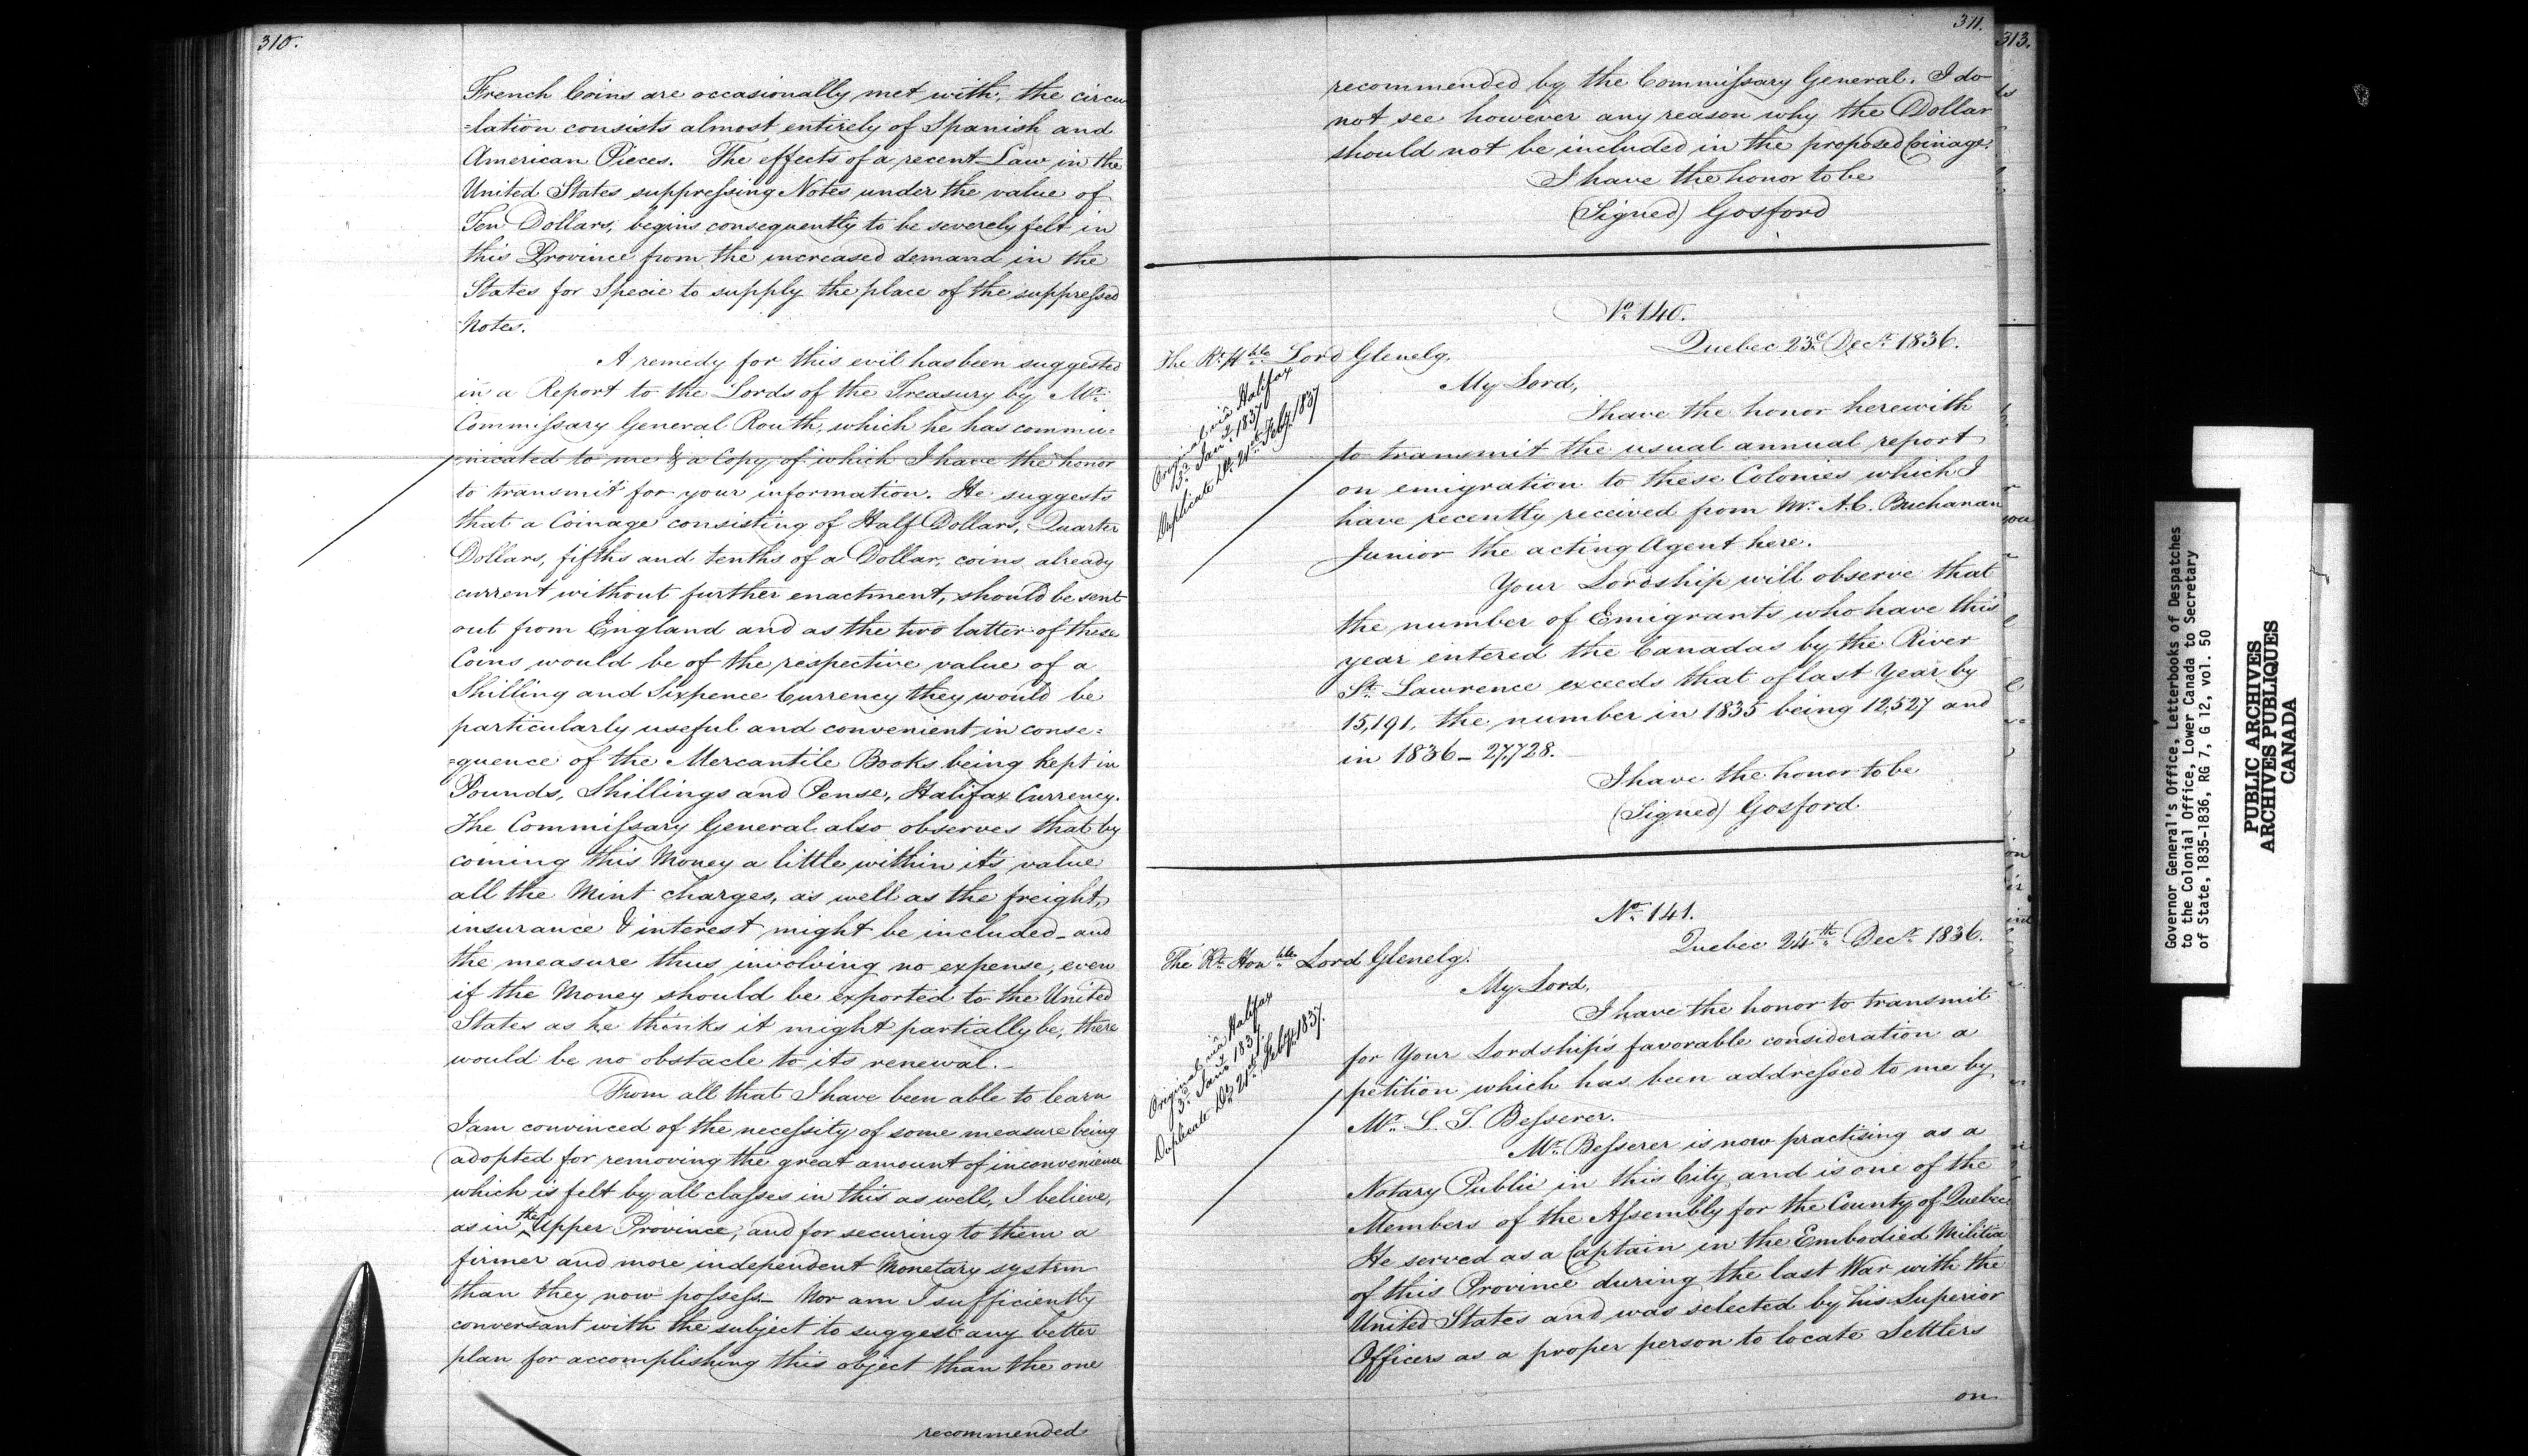 310.
French Coins are occasionally met with, the circu
=lation consists almost entirely of Spanish and
American Pieces. The effects of a recent Law in the
United States suppressing Notes under the value of
Ten Dollars, begins consequently to be severely felt in
this Province from the increased demand in the
States for Specie to supply the place of the suppressed
Notes.
A remedy for this evil has been suggested
in a Report to the Lords of the Treasury by Mr.
Commissary General Routh, which he has commu=
nicated to me & a Copy of which I have the honor
to transmit for your information. He suggests
that a Coinage consisting of Half Dollars, Quarter
Dollars, fifths and tenths of a Dollar, coins already
current without further enactment, should be sent
out from England and as the two latter of these
Coins would be of the respective value of a
Shilling and Sixpence Currency they would be
particularly useful and convenient in conse=
=quence of the Mercantile Books being kept in
Pounds, Shillings and Pense, Halifax Currency.
The Commissary General also observes that by
coining this Money a little within it's value
all the Mint charges, as well as the freight,
insurance & interest might be included - and
the measure thus involving no expense, even
if the Money should be exported to the United
States as he thinks it might partially be, there
would be no obstacle to its renewal. -
From all that I have been able to learn
I am convinced of the necessity of some measure being
adopted for removing the great amount of inconvenience
which is felt by all classes in this as well, I believe,
as in the Upper Province, and for securing to them a
firmer and more independent Monetary system
than they now possess - Nor am I sufficiently
conversant with the subject to suggest any better
plan for accomplishing this object than the one
recommended
311.
recommended by the Commissary General. I do
not see however any reason why the Dollar
should not be included in the proposed Coinage.
I have the honor to be
(Signed) Gosford
No. 140.
Quebec 23d Decr. 1836.
The Rt. Hble Lord Glenelg.
Original via Halifax
3d Jany. 1837
Duplicate Do. 21st Feby. 1837
My Lord,
I have the honor herewith
to transmit the usual annual report
on emigration to these Colonies which I
have recently received from Mr. A.C. Buchanan
Junior the acting Agent here.
Your Lordship will observe that
the number of Emigrants who have this
year entered the Canadas by the River
St. Lawrence exceeds that of last Year by
15,191, the number in 1835 being 12,527 and
in 1836 - 27,728.
I have the honor to be
(Signed) Gosford.
No. 141.
Quebec 24th Decr. 1836.
The Rt. Honble. Lord Glenelg.
Original via Halifax
3d Jany 1837.
Duplicate Do 21st Feby. 1837.
My Lord,
I have the honor to transmit
for Your Lordship's favorable consideration a
petition which has been addressed to me by
Mr. L. T. Besserer.
Mr. Besserer is now practising as a
Notary Public in this City and is one of the
Members of the Assembly for the County of Quebec
He served as a Captain in the Embodied Militia
of this Province during the last War with the
United States and was selected by his Superior
Officers as a proper person to locate Settlers
on
313.
Governor General's Office, Letterbooks of Despatches
to the Colonial Office, Lower Canada to Secretary
of State, 1835-1836, RG 7, G 12, vol. 50
PUBLIC ARCHIVES
ARCHIVES PUBLIQUES
CANADA